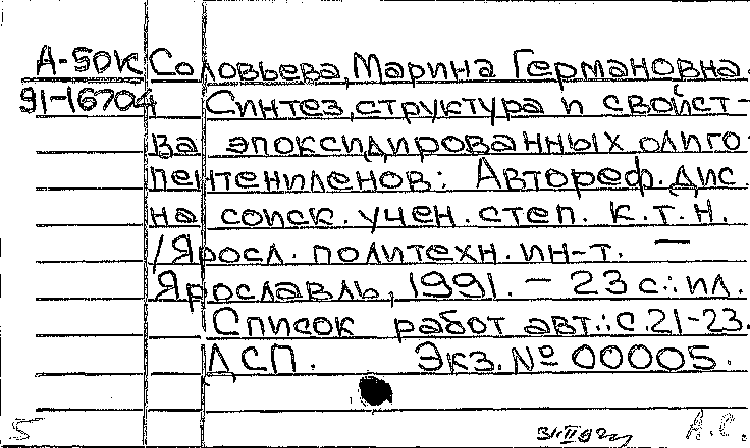 А-50к Соловьева, Марина Германовна.
91-16704 Синтез, структура и свойст-
ва эпоксидированных олиго-
пентениленов: Автореф. дис.
на соиск. учен. степ. к.т.н.
/Яросл. политехн. ин-т. —
Ярославль, 1991. - 23 с.: ил.
Список работ авт.: с. 21-23.
ДСП. Экз. № 00005.
5 А.С.